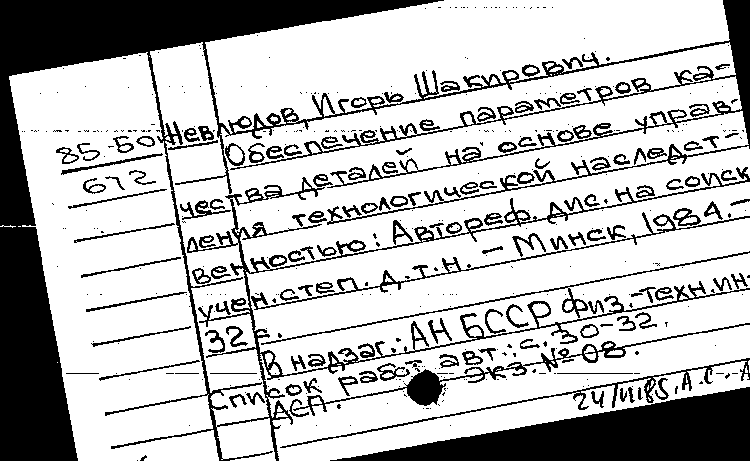 Невлюдов, Игорь Шакирович.
85-50
672
Обеспечение параметров ка-
чества деталей на основе управ-
ления технологической наследст-
венностью: Автореф. дис. на соиск
учен. степ. д.т.н. – Минск, 1984.–
32 с.
В надзаг.: АН БССР Физ.-техн. ин-
Список работ авт.: с. 30-32.
ДСП. Экз. № 08.